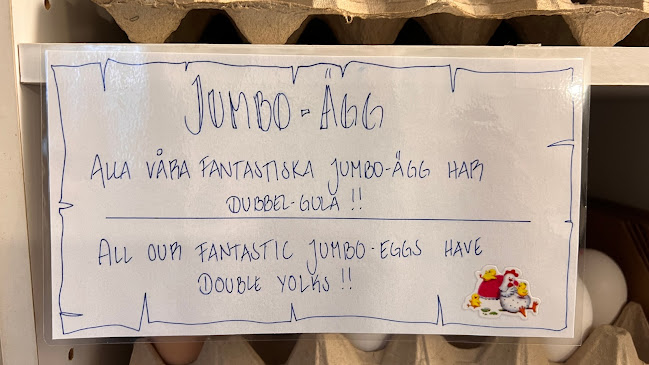 JUMBO-ÄGG
ALLA VÅRA FANTASTISKA JUMBO-ÄGG HAR
DUBBEL-GULA !!
ALL OUR FANTASTIC JUMBO-EGGS HAVE
DOUBLE YOLKS !!